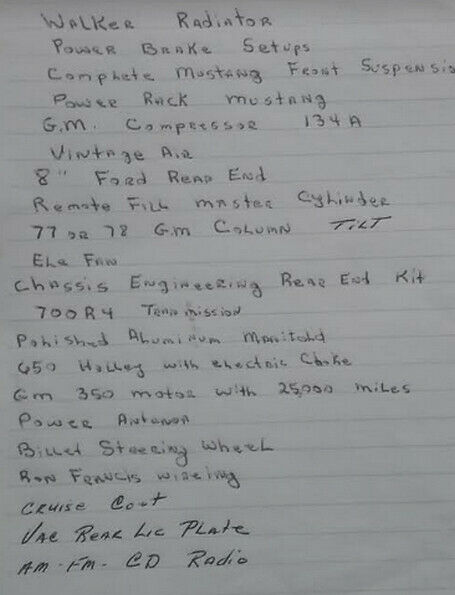 Walker Radiator
Power Brake Setups
Complete Mustang Front Suspensio
Power Rack Mustang
G.M. Compressor 134A
Vintage Air
8" Ford Rear End
Remote Fill master Cylinder
77 or 78 G.M Column TILT
Ele Fan
Chassis Engineering Rear End Kit
700R4 Tranmission
Polished Aluminum Manifold
650 Holley with electric Choke
Gm 350 motor with 25,000 miles
Power Antenna
Billet Steering Wheel
Ron Francis wireing
CRUISE Cont
VAC REAR Lic PLATE
AM-FM- CD Radio